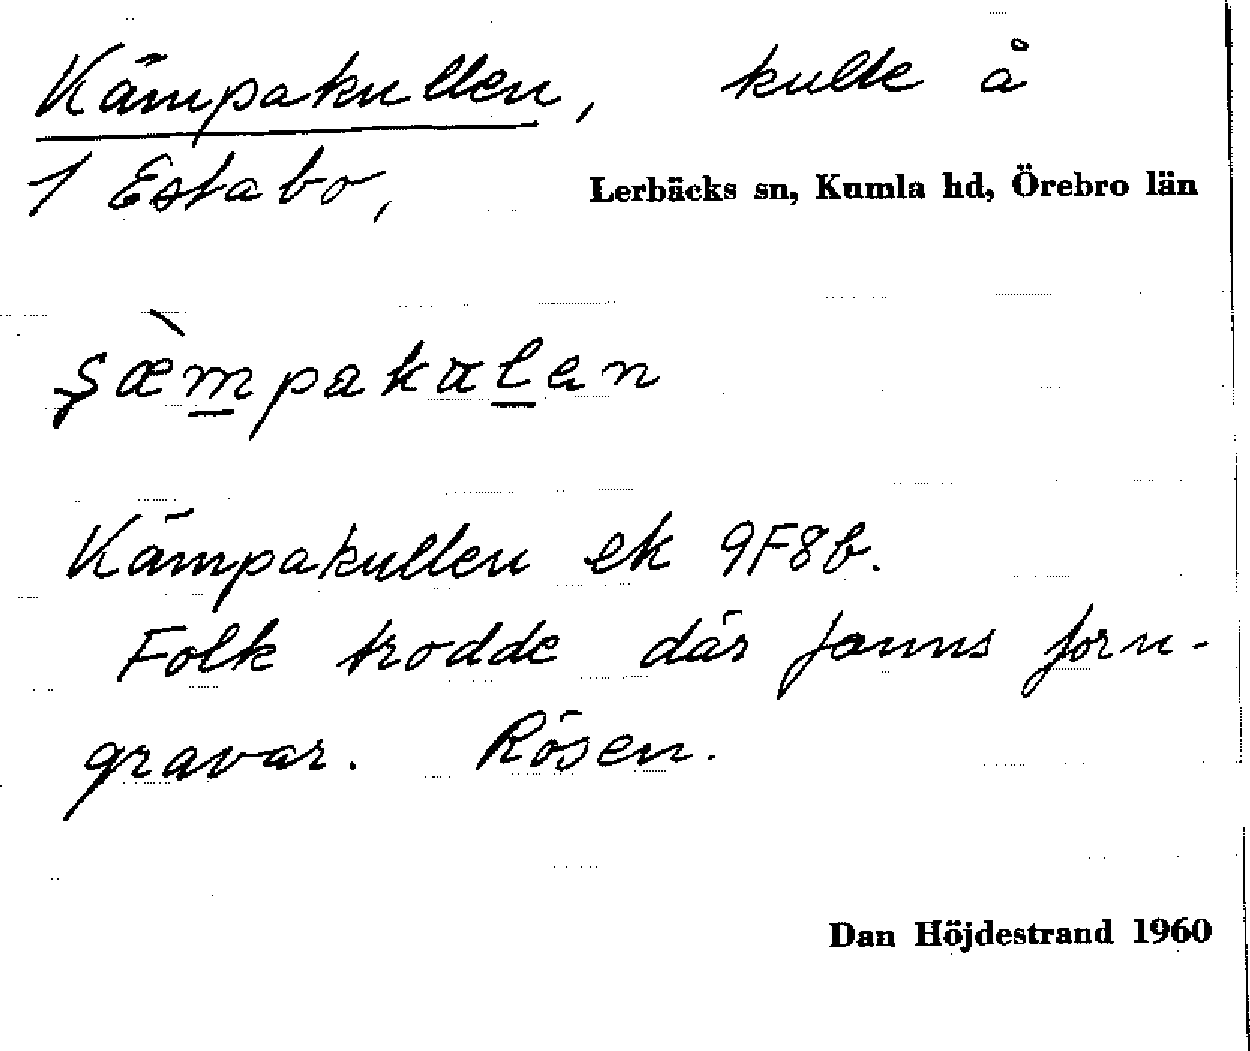 Kämpakullen, kulle å
1 Estabo, Lerbäcks sn, Kumla hd, Örebro län
şæ̀mpakuлen
Kämpakullen ek 9F8b.
Folk trodde där fanns forn-
gravar. Rösen.
Dan Höjdestrand 1960